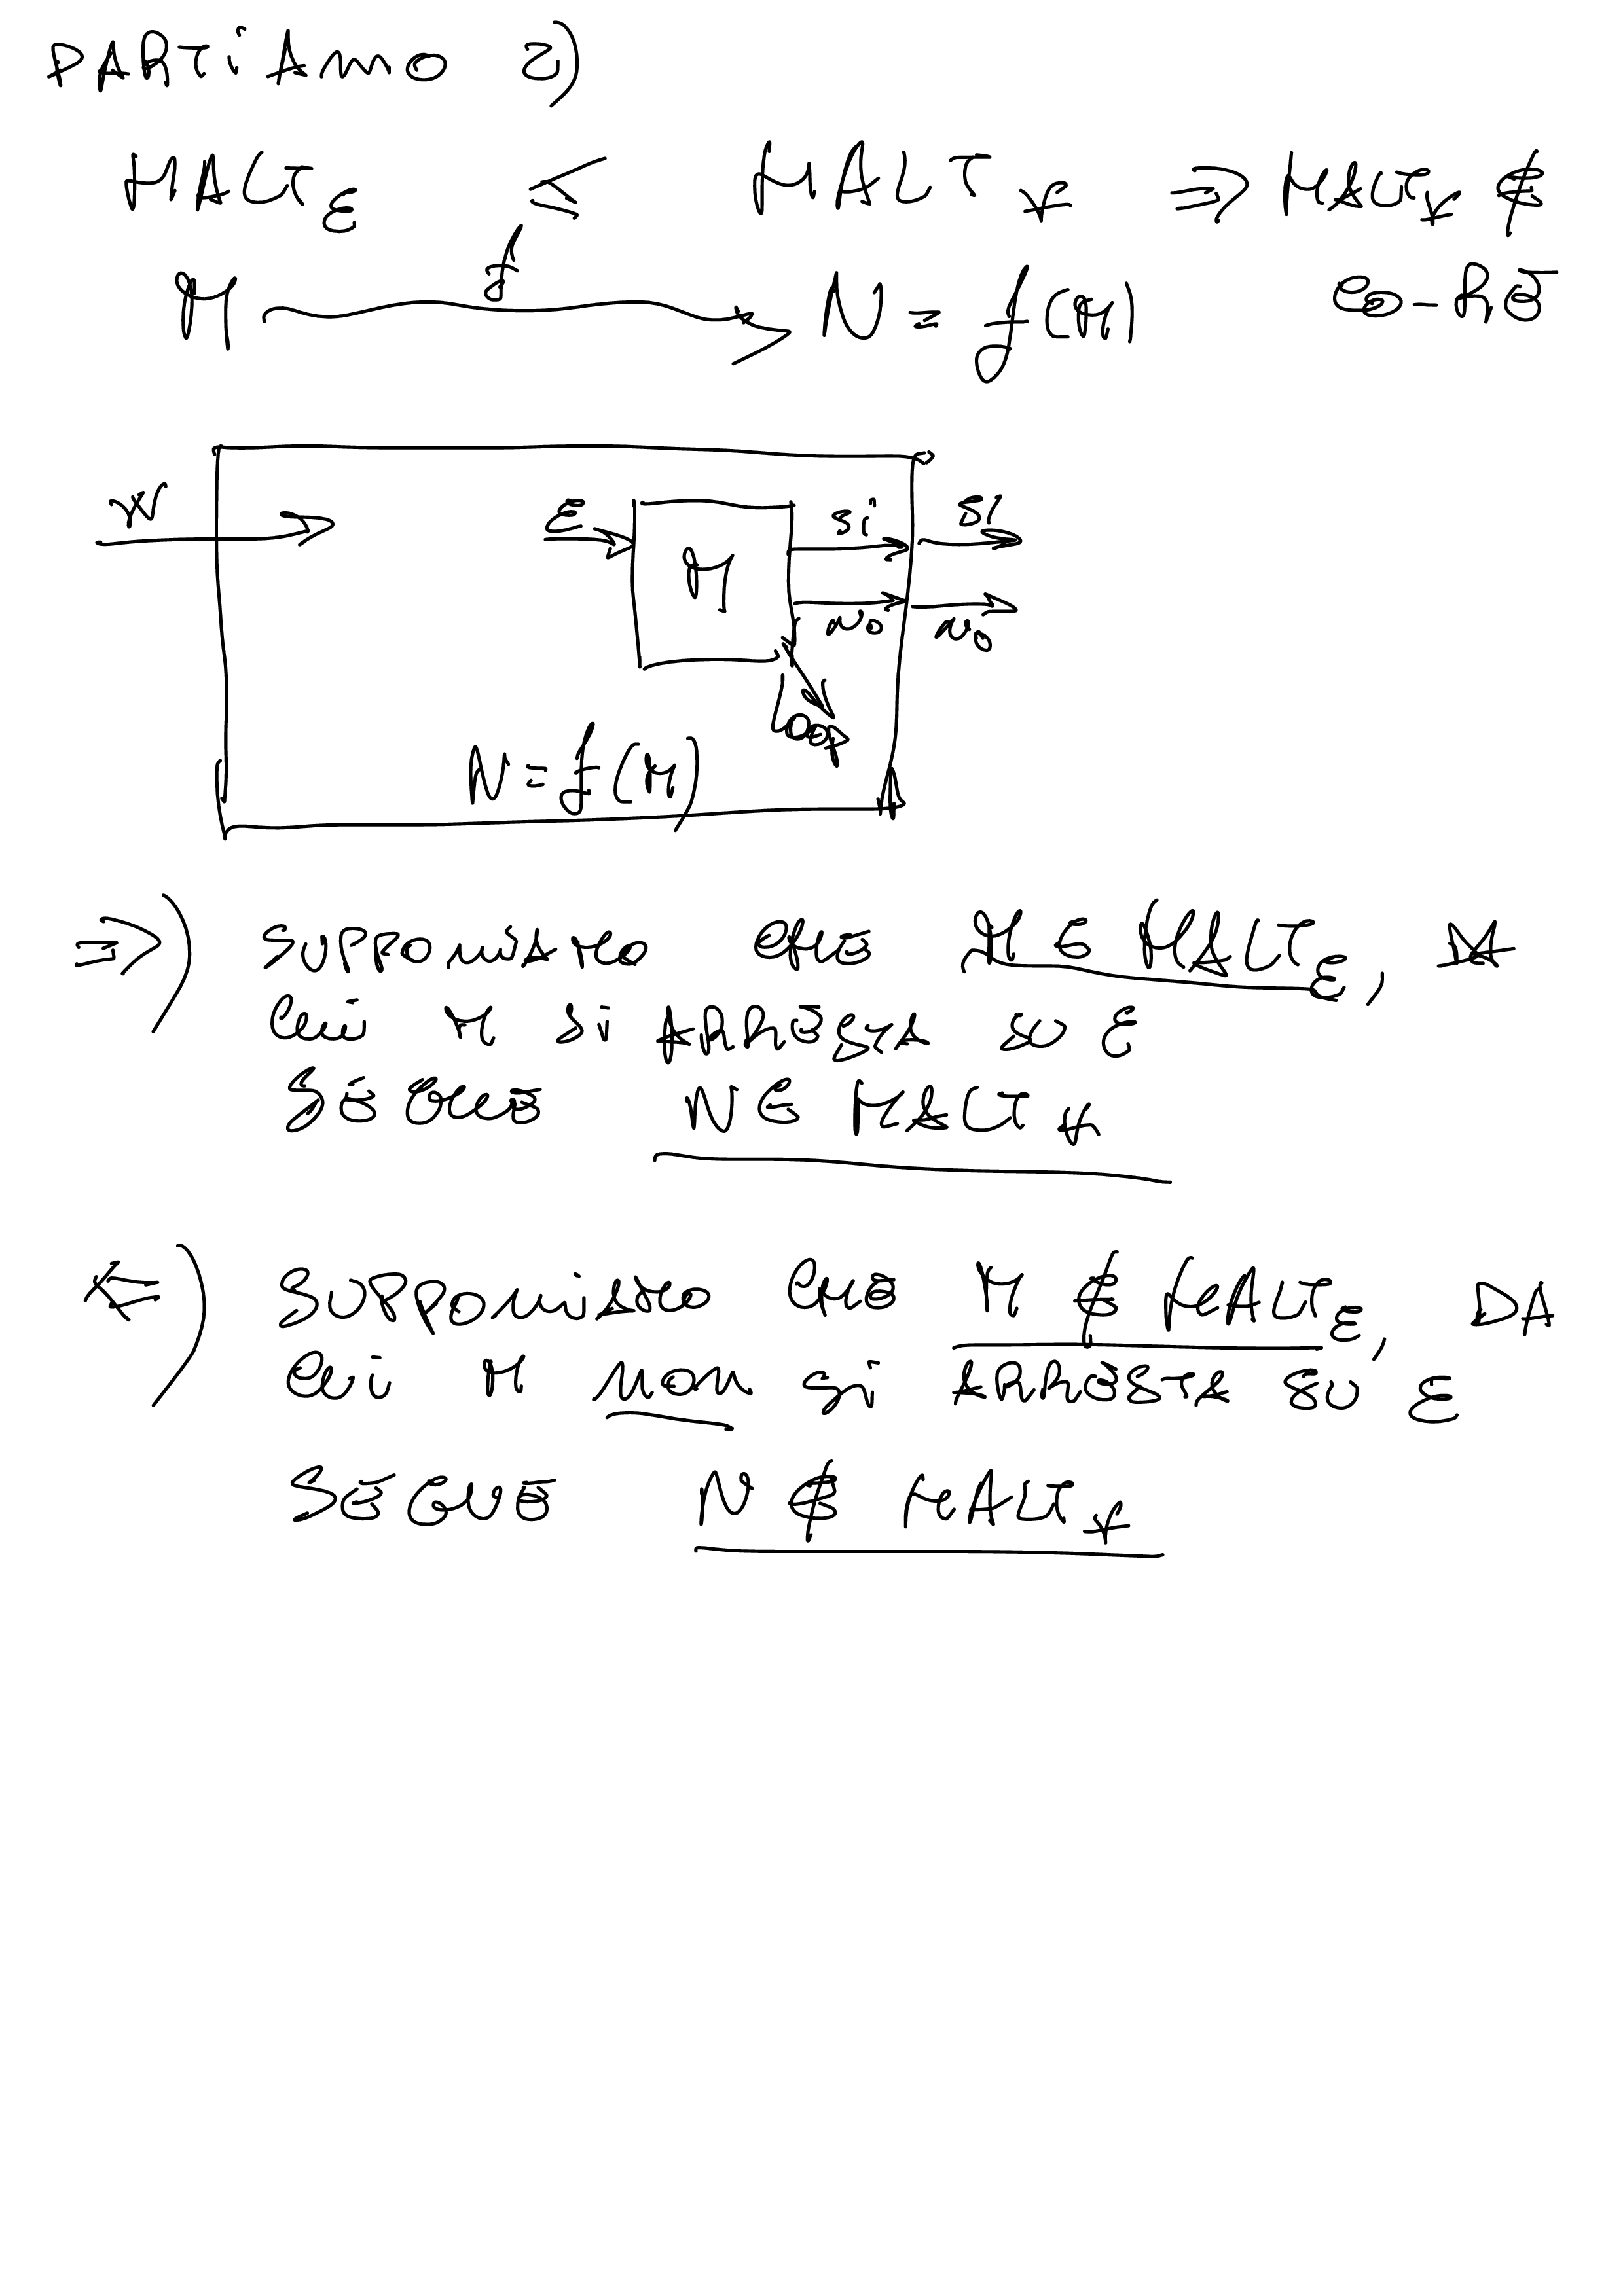 PARTIAMO 2)
HALTε ≤ HALT∀ ⇒ HALT∀ ∉
M f N = f(M) CO-RE
W ε M Si Si
NO NO
LOOP
N = f(M)
⇒) SUPPONIAMO CHE M ∈ HALTε, DA
CUI M SI ARRESTA SU ε
SEGUE N ∈ HALT∀
⇐) SUPPONIAMO CHE M ∉ HALTε, DA
CUI M NON SI ARRESTA SU ε
SEGUE N ∉ HALT∀